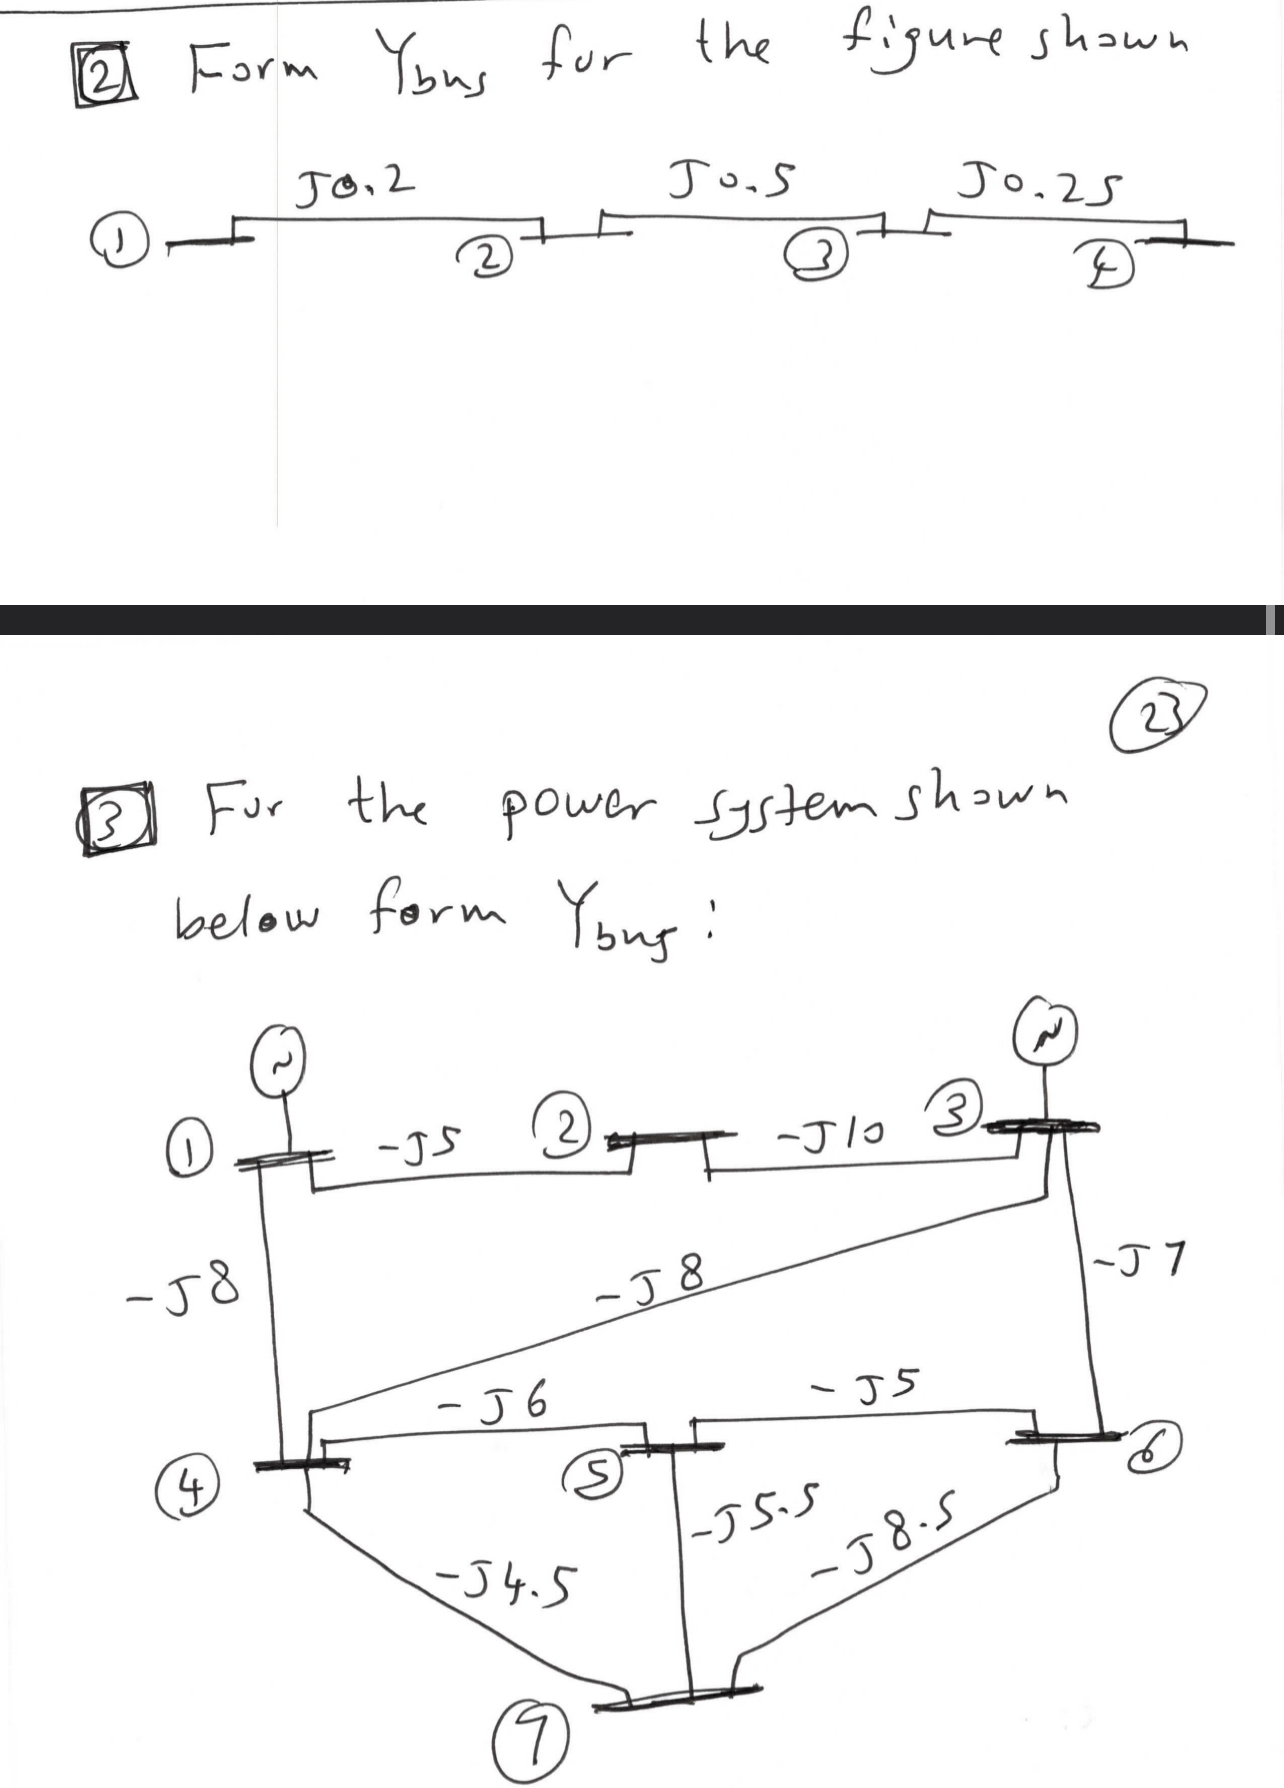 2 Form Ybus for the figure shown
J0.2 J0.5 J0.25
1 2 3 4
23
3 For the power system shown
below form Ybus:
~ ~
1 -J5 2 -J10 3
-J8 -J8 -J7
-J6 -J5
4 5 6
-J4.5 -J5.5 -J8.5
7